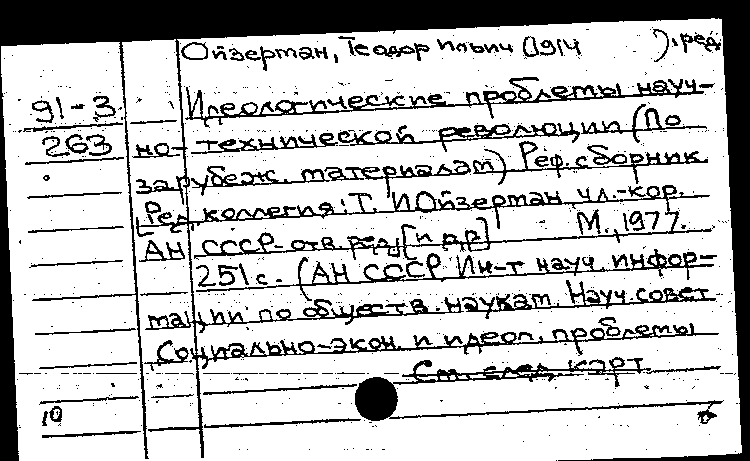 Ойзерман, Теодор Ильич (1914 ), ред.
91-3
263
Идеологические проблемы науч-
но-технической революции (По
зарубеж. материалам) Реф. сборник.
[Ред. коллегия: Т. И Ойзерман чл.-кор.
АН СССР-отв. ред. [и др] М., 1977.
251 с. (АН СССР. Ин-т науч. инфор-
мации по обществ. наукам. Науч. совет
"Социально-экон. и идеол. проблемы
См. след. карт.
10